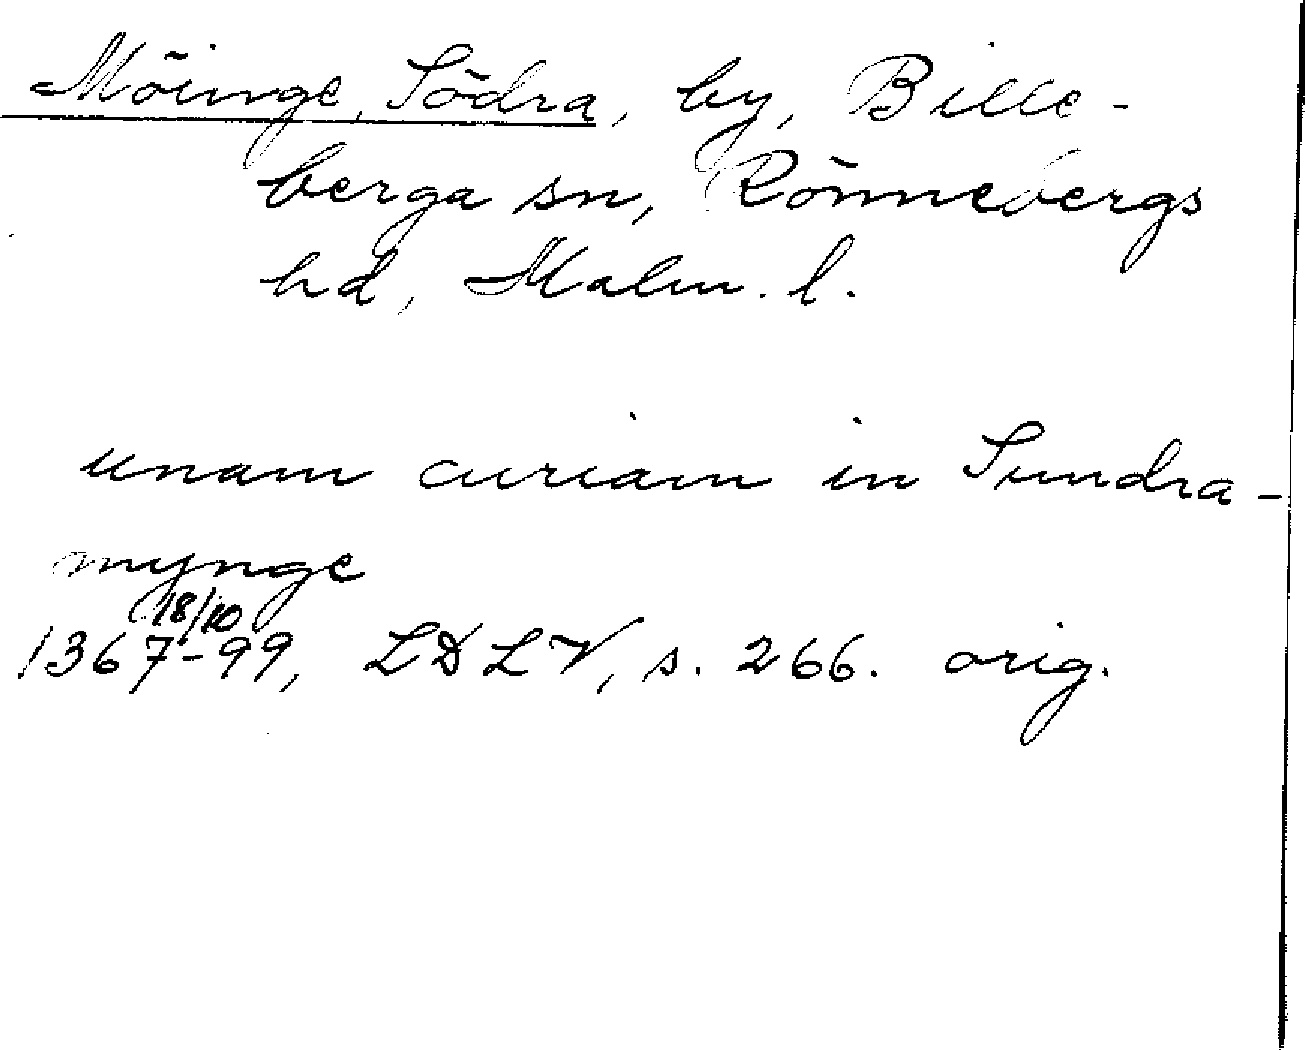 Möinge, Södra, by, Bille-
berga sn, Rönnebergs
hd, Malm. l.
unam curiam in Sundra-
mynge
18/10
1367-99, LDLV, s. 266. orig.